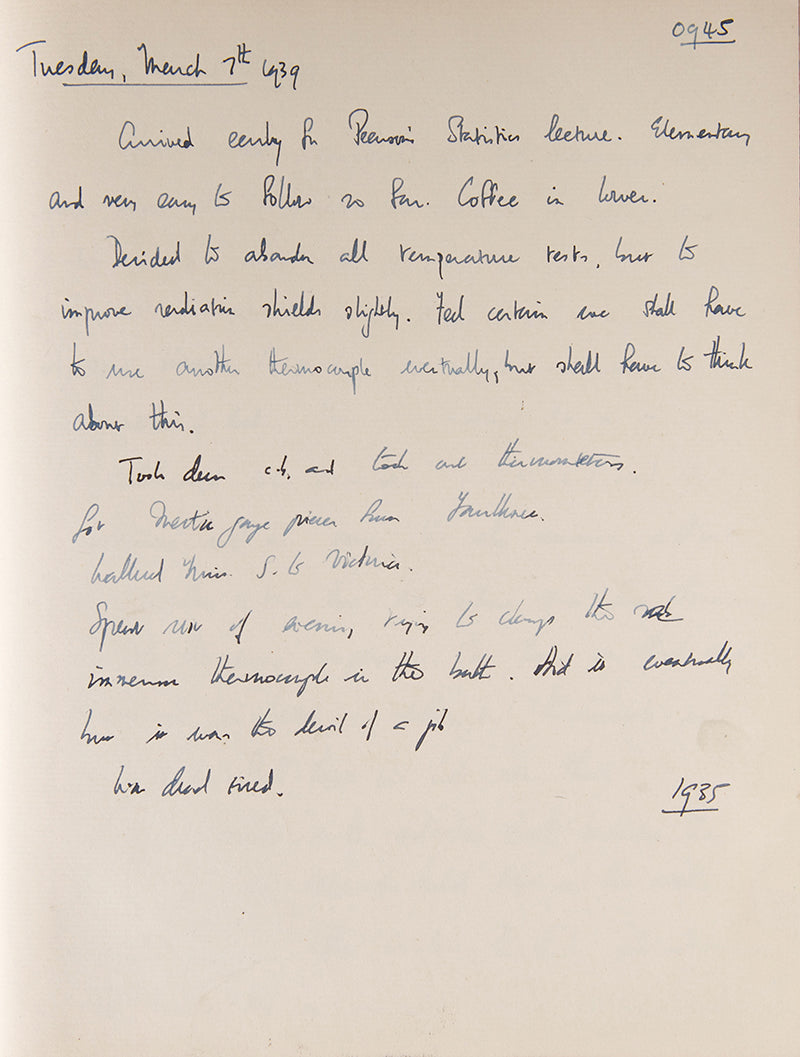 0945
Tuesday, March 7th 1939
Arrived early for Pearson's Statistics lecture. Elementary
and very easy to follow so far. Coffee in lower.
Decided to abandon all temperature tests, but to
improve radiation shields slightly. Feel certain we shall have
to use another thermocouple eventually, but shall have to think
about this.
Took down and took out thermometers.
Got gauge pieces from Faulkner.
Walked Miss. S. to Victoria.
Spent rest of evening trying to clamp the
immersion thermocouple in the bath. Did it eventually
but it was the devil of a job
Was dead tired.
1935